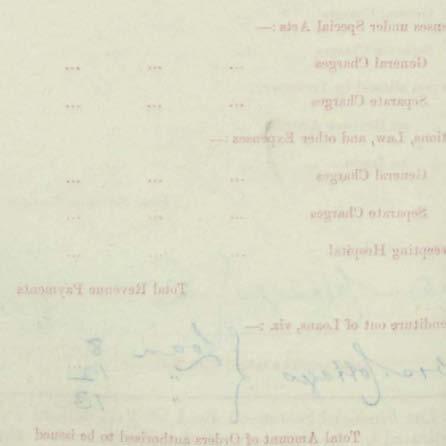 enses under Special Acts :—
General Charges ... ... ...
Separate Charges ... ... ...
tions, Law, and other Expenses :—
General Charges ... ... ...
Separate Charges ... ... ...
cepting Hospital ... ... ...
Total Revenue Payments
enditure out of Loans, viz. :—
Loan 8
Cottages " 12
" 13
Total Amount of Orders authorised to be issued